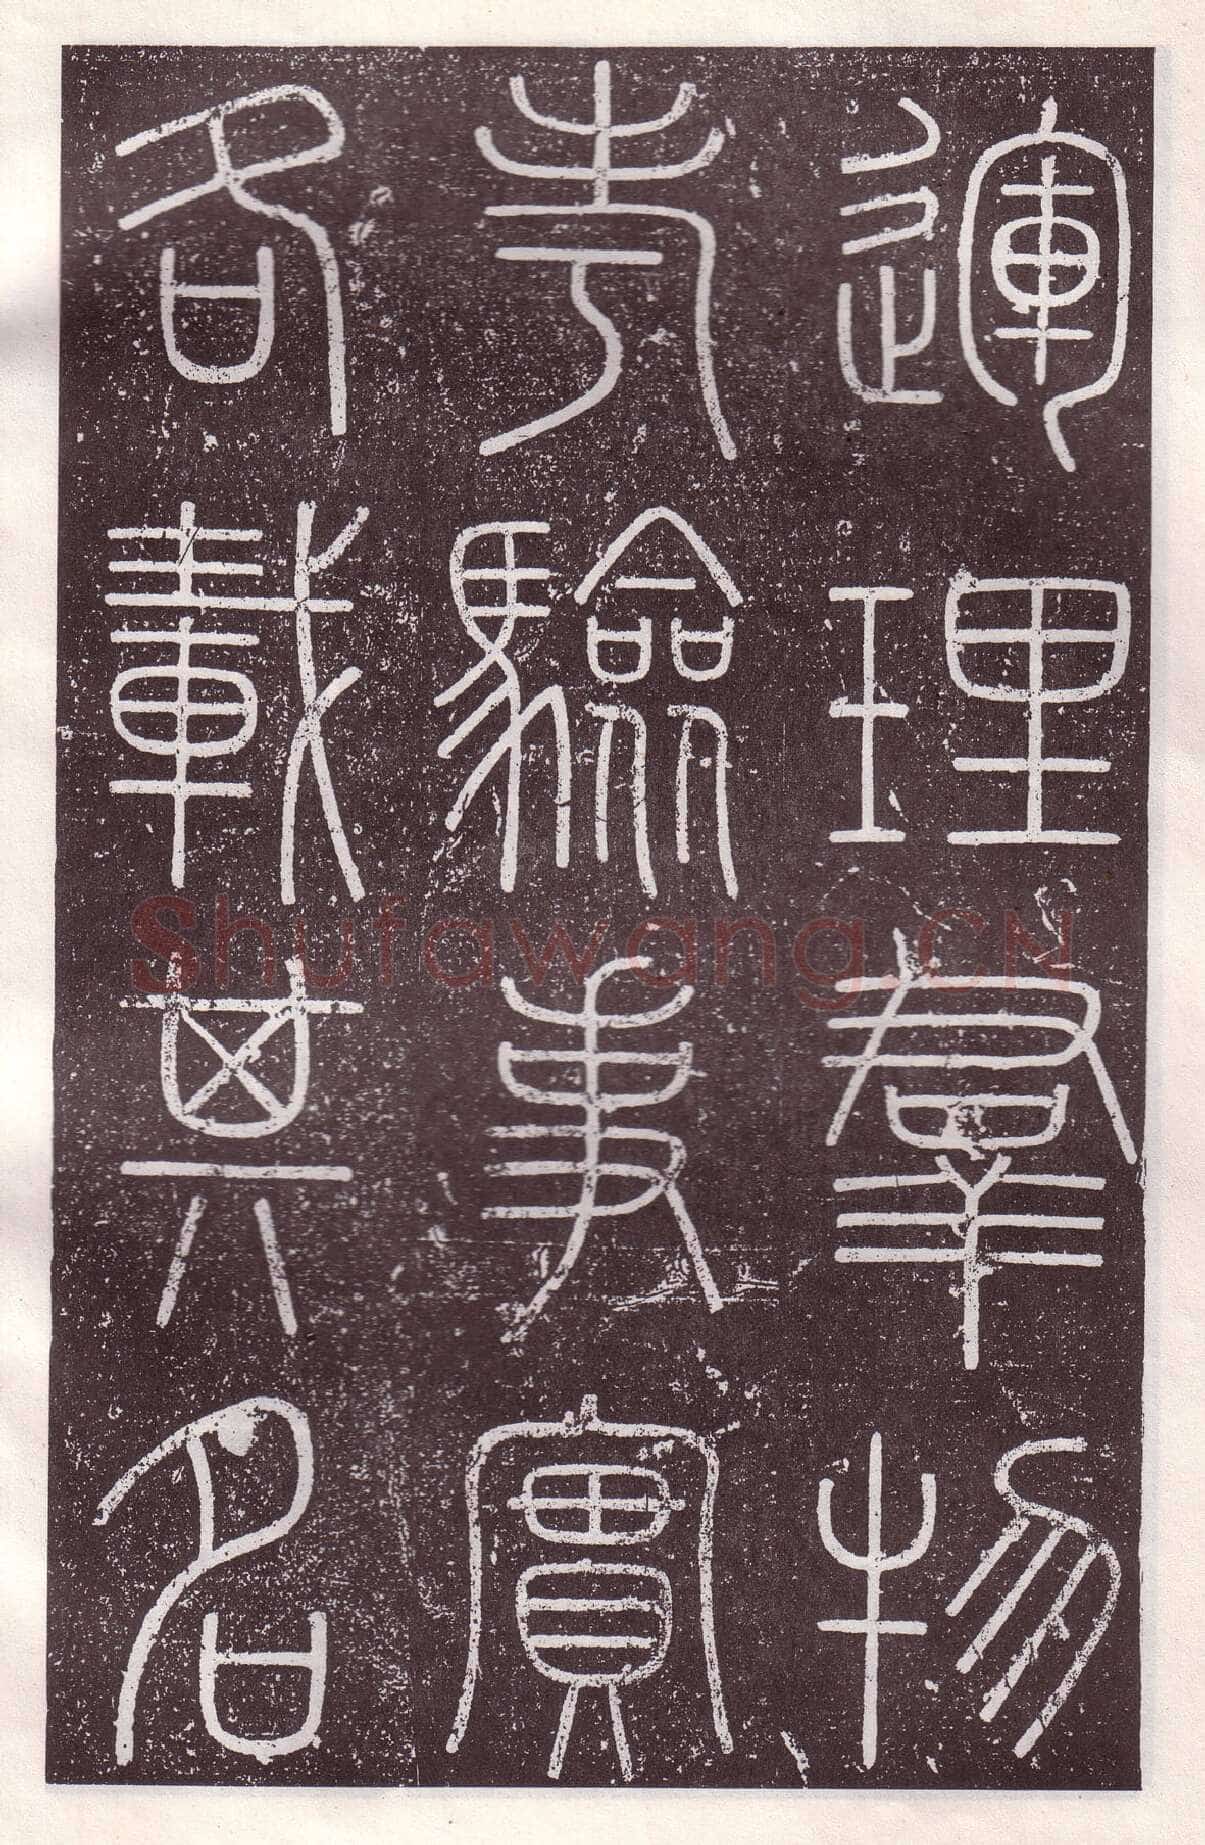 運理群物
考驗事實
各載其名
Shufawang.CN